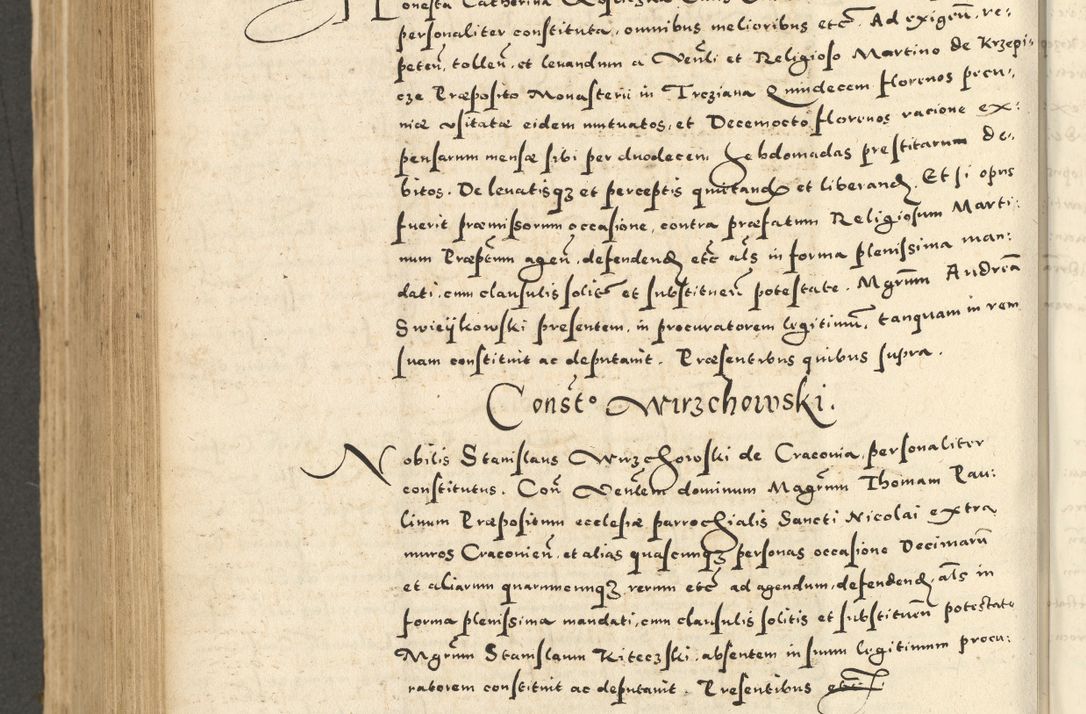 onesta Catherina
personaliter constituta, omnibus melioribus etc. Ad exigen̄, re-
peten̄, tollen̄, et levandum a Ven̄li et Religioso Martino de Krzepi-
cze Præposito Monasterii in Treziana Quindecem florenos pecu-
niæ usitatæ eidem mutuatos, et Decemocto florenos racione ex-
pensarum mensæ sibi per duodecem Hebdomadas prestitarum de-
bitos. De levatisqꝫ et perceptis quitandꝭ et liberandꝭ. Et si opus
fuerit præmissorum occasione, contra præfatum Religiosum Marti-
num Præptum agen̄, defendendꝭ etc̄ al̄s in forma plenissima man-
dati, cum clausulis solitꝭ et substituen̄ potestate. Mgr̄um Andreā
Swieijkowski presentem, in procuratorem legitimū, tanquam in rem
suam constituit ac deputavit. Præsentibus quibus supra.
Const̄o Wirzchowski.
Nobilis Stanislaus Wirzchowski de Cracovia, personaliter
constitutus. Con̄ Ven̄lem dominum Magr̄um Thomam Pau-
linum Præpositum ecclesiæ parrochialis Sancti Nicolai extra
muros Cracovien̄, et alias quascunqꝫ personas occasione Decimarū
et aliarum quarumcunqꝫ rerum etc̄ ad agendum, defendendꝭ, al̄s in
forma plenissima mandati, cum clausulis solitis et substituen̄ potestate
Mgr̄um Stanislaum Kiteczski, absentem in suum legitimum procu-
ratorem constituit ac deputavit. Presentibus etc̄